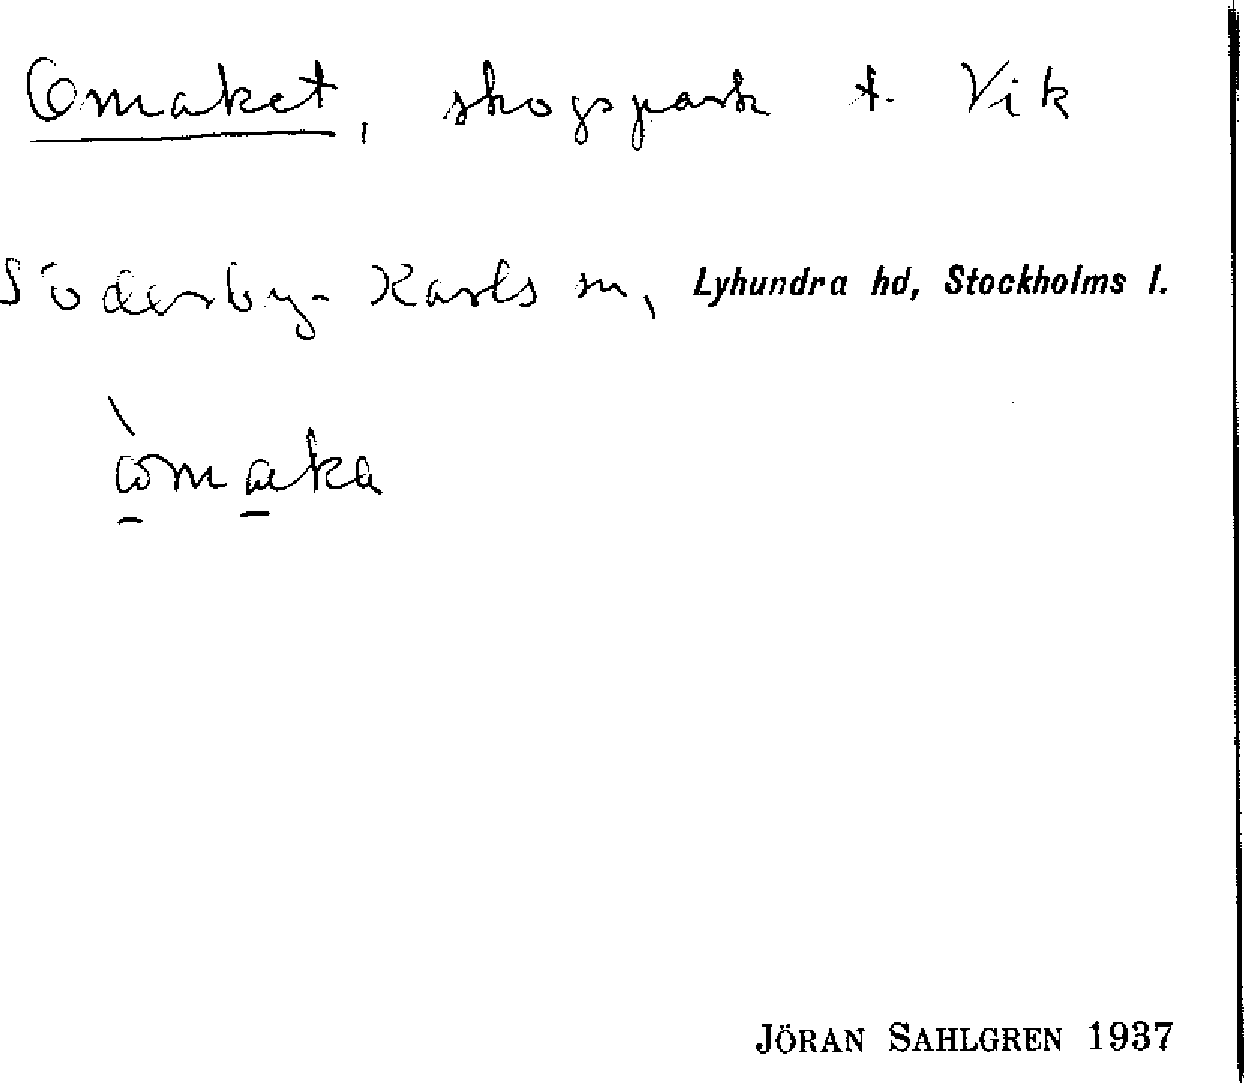 Omaket, skogspark t. Vik
Söderby-Karls sn, Lyhundra hd, Stockholms l.
òmaka
JÖRAN SAHLGREN 1937